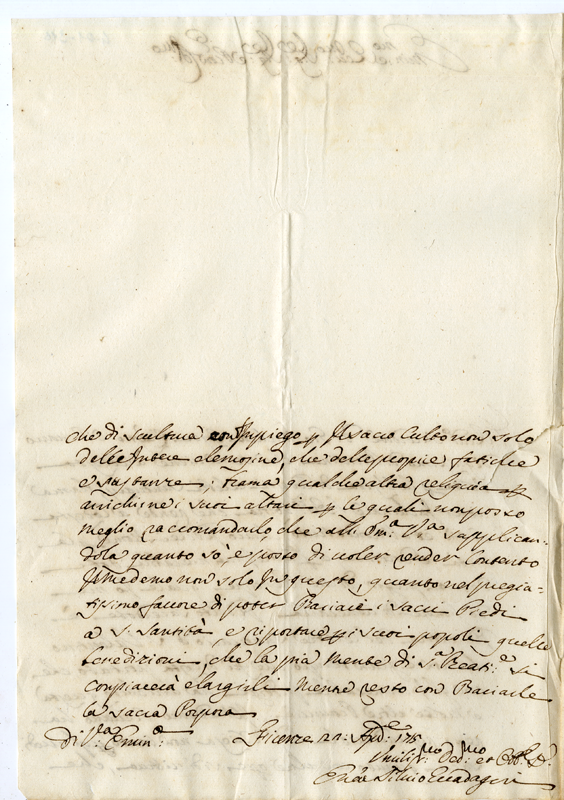 che di scultura con Impiego p Il sacro Culto non solo
delle Intere elemosine, che delle proprie fatiche
e sustanze; brama qualche altra reliquia p
arichire i suoi altari p le quali non posso
meglio raccomandarlo che all Em.a V.a supplican-
dola quanto sò, e posso di voler render Contento
Il medemo non solo In questo, quanto nel pregia-
tissimo favore di poter Baciare i sacri Piedi
a S. Santità, e riportare p i suoi popoli quelle
benedizioni, che la pia mente di S.a Beati.e si
compiacerà elargirli mentre resto con Baciarle
la sacra Porpora
di V.a Emin.e Firenze
Umilis.mo Dev.mo et
Enea Silvio